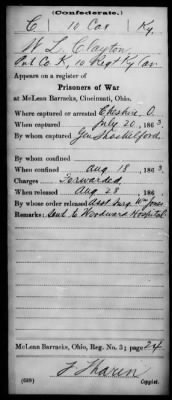 (Confederate.)
C 10 Cav Ky.
W L Clayton
Pvt Co K, 10 Regt Ky Cav
Appears on a register of
Prisoners of War
at McLean Barracks, Cincinnati, Ohio.
Where captured or arrested Cheshire, O.
When captured July 20, 1863.
By whom captured Gen Shackelford
By whom confined
When confined Aug 18, 1863.
Charges Forwarded
When released Aug 28, 186 .
By whose order released Asst Surg Wm Jones
Remarks: Sent E Woodward Hospital
McLean Barracks, Ohio, Reg. No. 3; page 24
(639) Copyist.